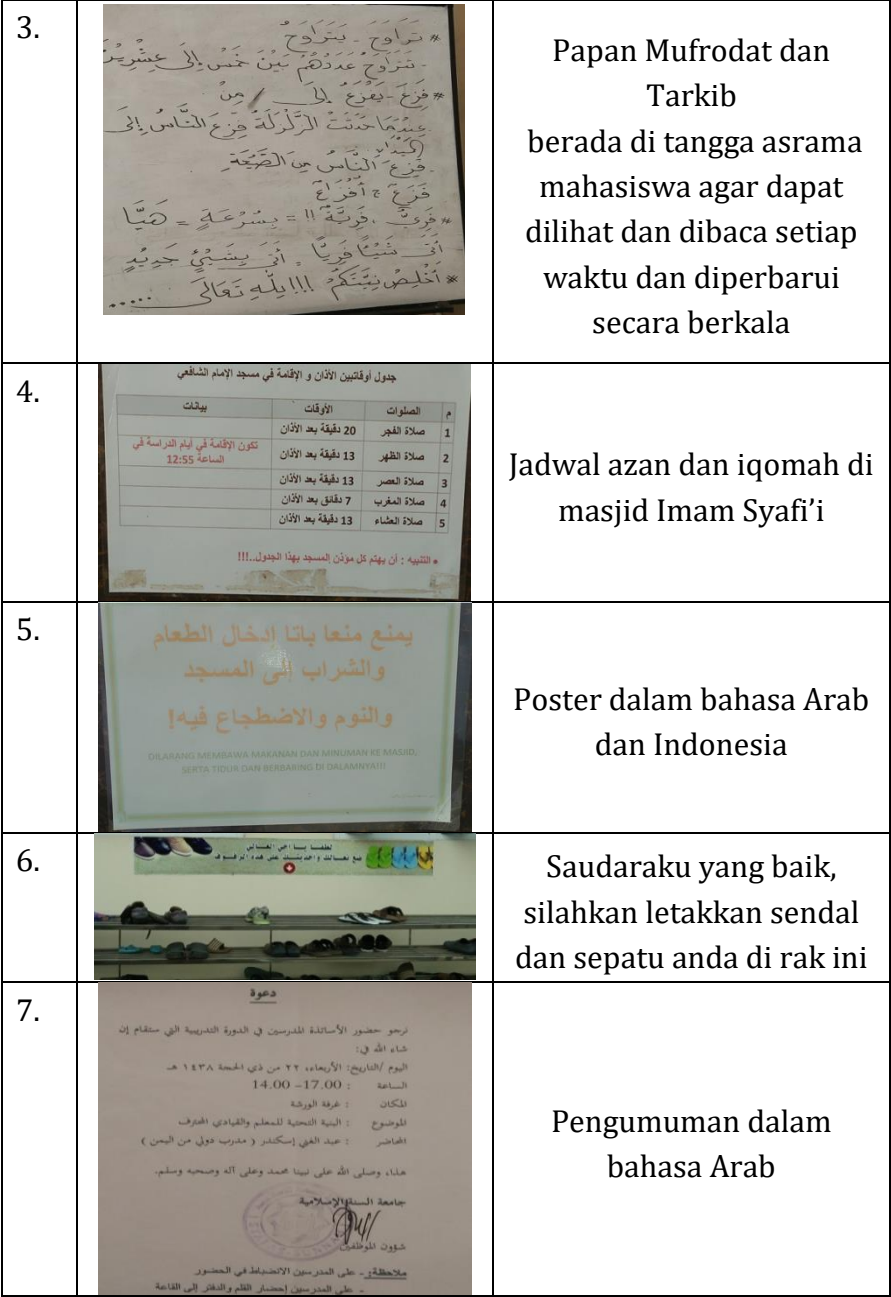 3.
* تَرَاوَحَ - يَتَرَاوَحُ
- تَتَرَاوَحُ عَدَدُهُمْ بَيْنَ خَمْسٍ إِلَى عِشْرِيْنَ
* فَزِعَ - يَفْزَعُ إِلَى / مِنْ
عِنْدَمَا حَدَثَتْ الزَّلْزَلَةُ فَزِعَ النَّاسُ إِلَى
فَزِعَ النَّاسُ مِنَ
فَزَعَ ج أَفْزَاعٌ
* فَرِيٌّ . فَرِيَّةٌ !! = بِسُرْعَةٍ = هَيَّا
أَتَى شَيْئًا فَرِيًّا . أَتَى بِشَيْئٍ جَدِيْدٍ
* أَخْلِصْ نِيَّتَكُمْ !!! لِلّٰهِ تَعَالَى .....
Papan Mufrodat dan
Tarkib
berada di tangga asrama
mahasiswa agar dapat
dilihat dan dibaca setiap
waktu dan diperbarui
secara berkala
4.
جدول أوقاتبين الأذان و الإقامة في مسجد الإمام الشافعي
م الصلوات الأوقات بيانات
1 صلاة الفجر 20 دقيقة بعد الأذان
2 صلاة الظهر 13 دقيقة بعد الأذان تكون الإقامة في أيام الدراسة في
الساعة 12:55
3 صلاة العصر 13 دقيقة بعد الأذان
4 صلاة المغرب 7 دقائق بعد الأذان
5 صلاة العشاء 13 دقيقة بعد الأذان
* التنبيه : أن يهتم كل مؤذن المسجد بهذا الجدول..!!!
Jadwal azan dan iqomah di
masjid Imam Syafi’i
5.
يمنع منعا باتا إدخال الطعام
والشراب إلى المسجد
والنوم والاضطجاع فيه!
DILARANG MEMBAWA MAKANAN DAN MINUMAN KE MASJID,
SERTA TIDUR DAN BERBARING DI DALAMNYA!!!
Poster dalam bahasa Arab
dan Indonesia
6.
لطفا يا أخي الغالي
ضع نعالك وأحذيتك على هذه الرفوف
Saudaraku yang baik,
silahkan letakkan sendal
dan sepatu anda di rak ini
7.
دعوة
نرجو حضور الأساتذة المدرسين في الدورة التدريبية التي ستقام إن
شاء الله في:
اليوم /التاريخ: الأربعاء، ٢٢ من ذي الحجة ١٤٣٨ هـ
الساعة : 14.00 –17.00
المكان : غرفة الورشة
الموضوع : البنية التحتية للمعلم والقيادي المحترف
المحاضر : عبد الغني إسكندر ( مدرب دولي من اليمن )
هذا، وصلى الله على نبينا محمد وعلى آله وصحبه وسلم.
جامعة السنة الإسلامية
شؤون الموظفين
ملاحظة: - على المدرسين الانضباط في الحضور
- على المدرسين إحضار القلم والدفتر إلى القاعة
Pengumuman dalam
bahasa Arab